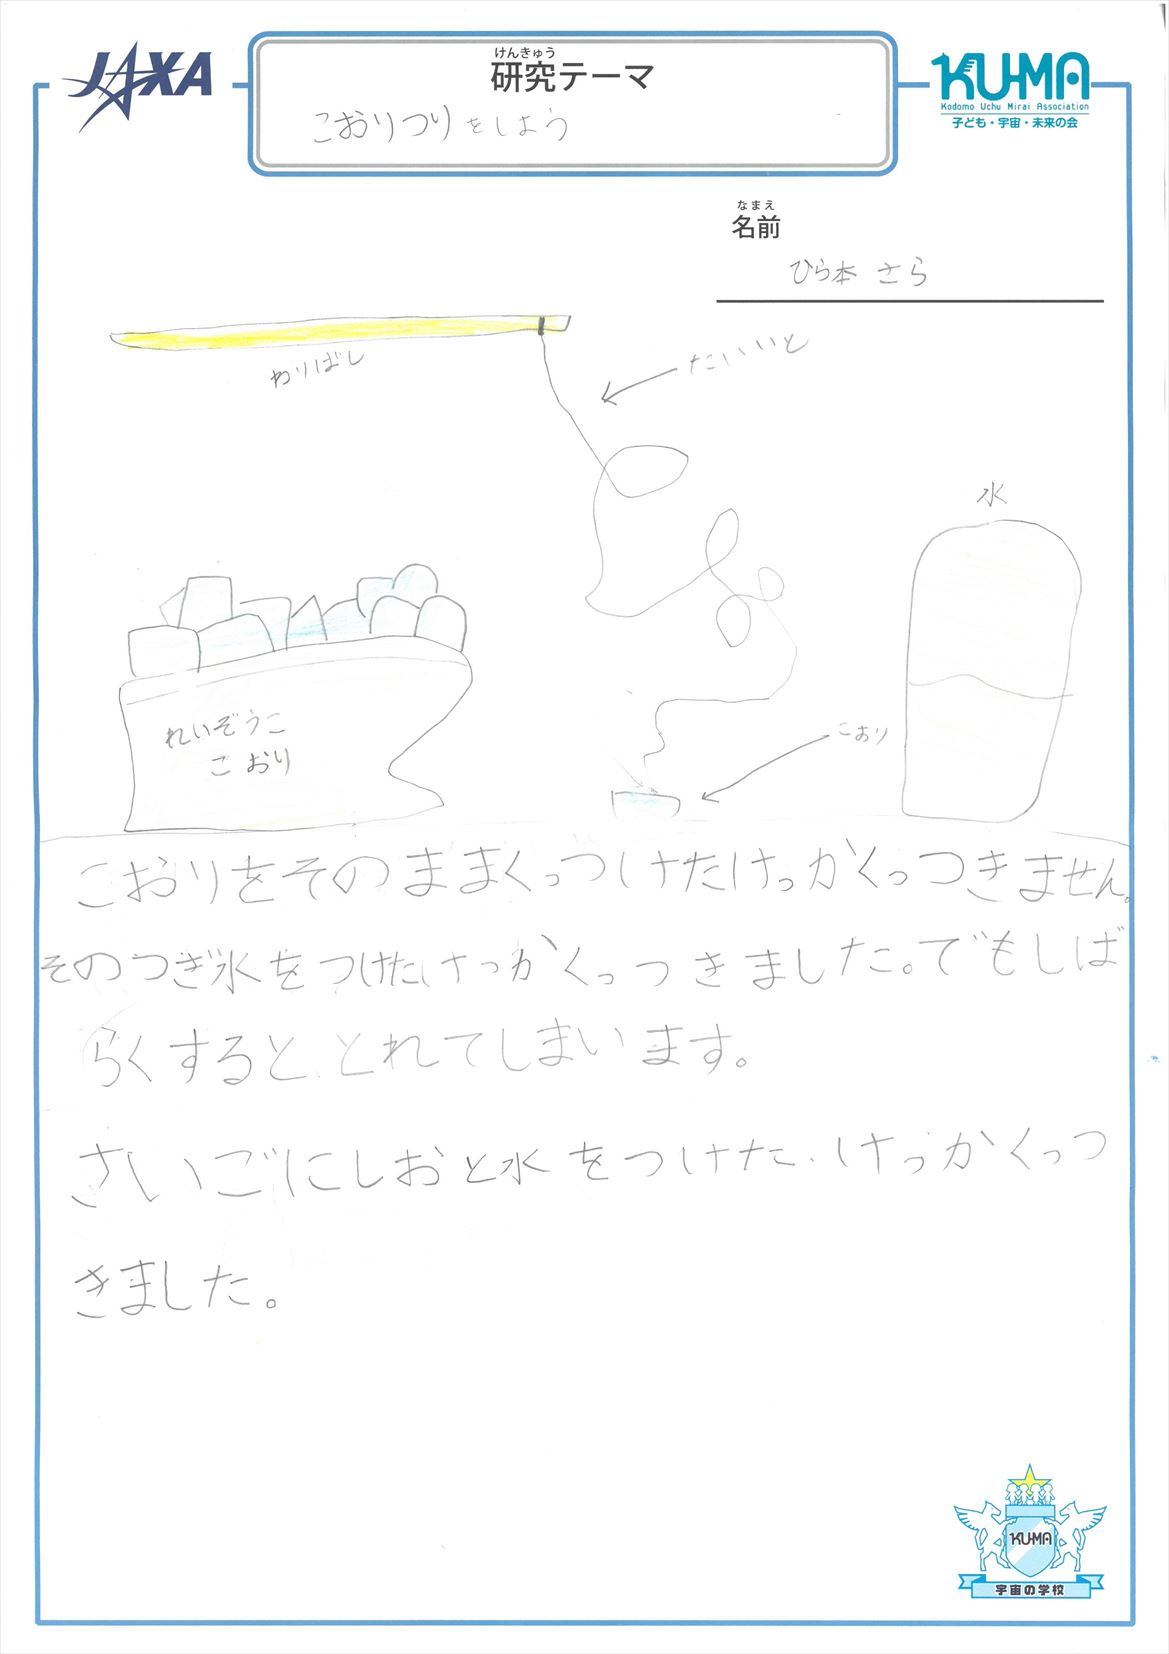 JAXA
けんきゅう
研究テーマ
こおりつりをしよう
KU-MA
Kodomo Uchu Mirai Association
子ども・宇宙・未来の会
なまえ
名前
ひら本 さら
わりばし
たいいと
水
れいぞうこ
こおり
こおり
こおりをそのままくっつけたけっかくっつきません。
そのつぎ水をつけたけっかくっつきました。でもしば
らくすると、とれてしまいます。
さいごにしおと水をつけた、けっかくっつ
きました。
KU-MA
宇宙の学校